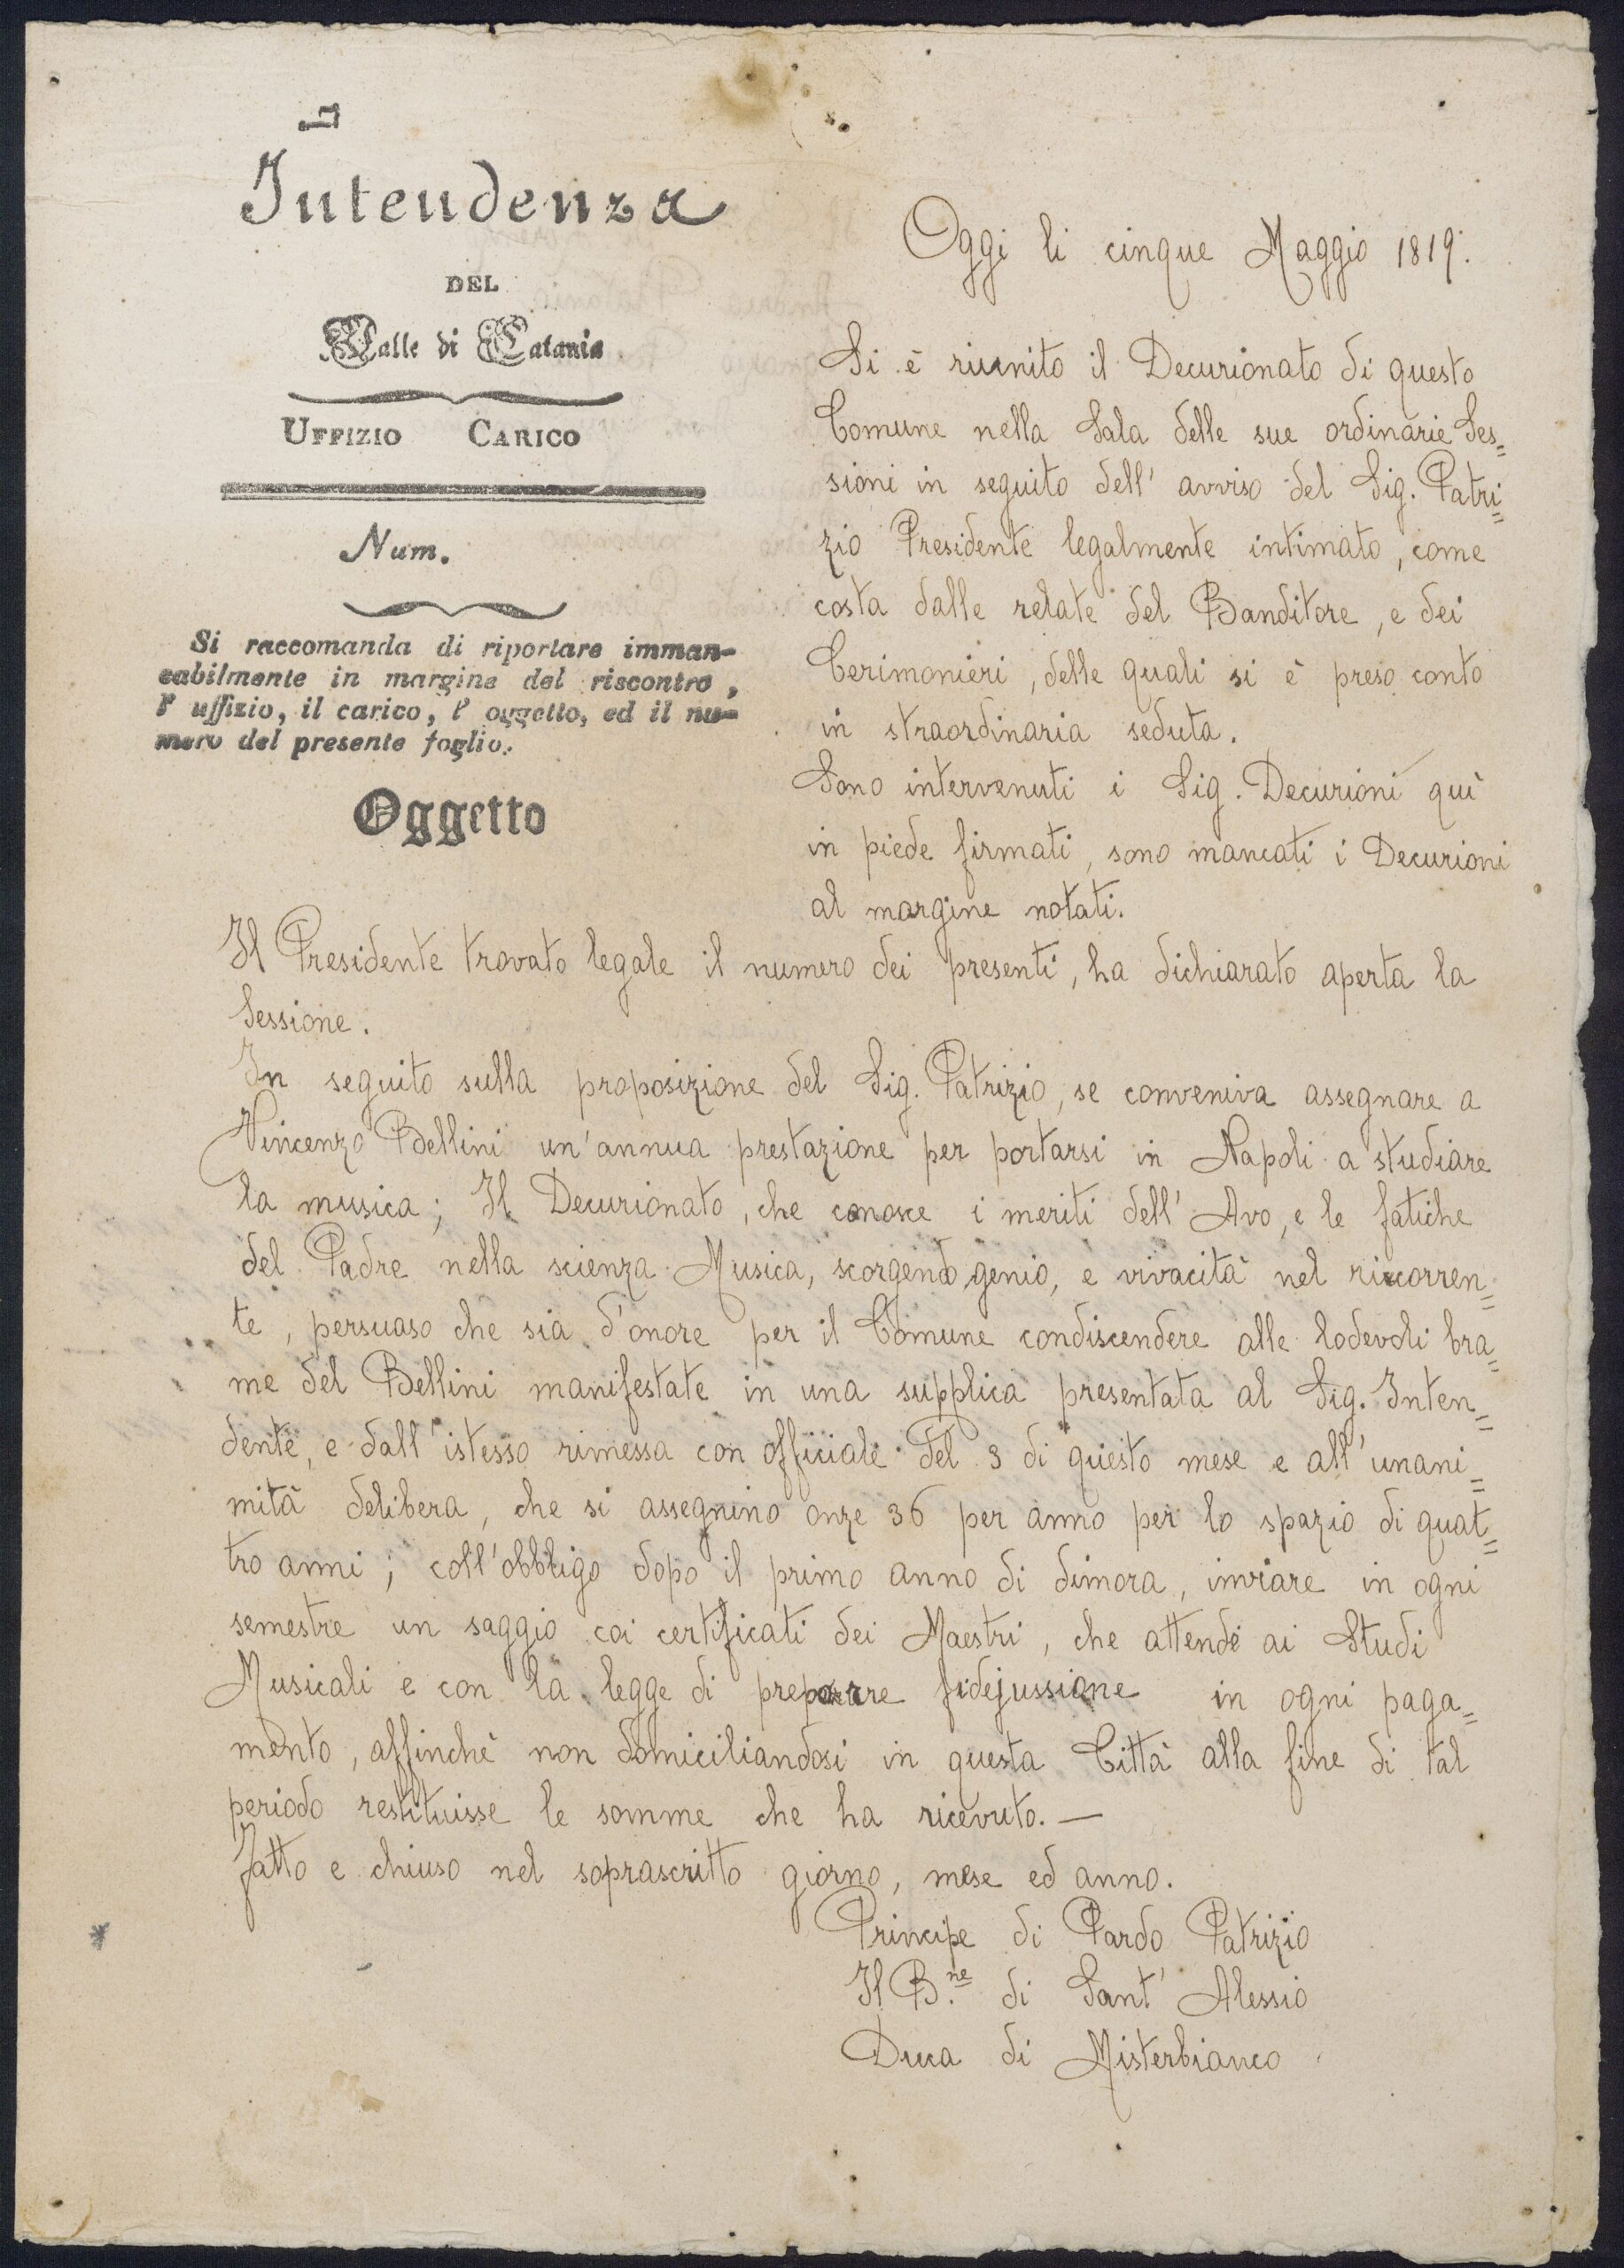 Intendenza
DEL
Valle di Catania
UFFIZIO CARICO
Num.
Si raccomanda di riportare imman-
cabilmente in margine del riscontro,
l' uffizio, il carico, l' oggetto, ed il nu-
mero del presente foglio.
Oggetto
Oggi li cinque Maggio 1819.
Si è riunito il Decurionato di questo
Comune nella Sala delle sue ordinarie Ses=
sioni in seguito dell' avviso del Sig. Patri=
zio Presidente legalmente intimato, come
costa dalle relate del Banditore, e dei
Cerimonieri, delle quali si è preso conto
in straordinaria seduta.
Sono intervenuti i Sig. Decurioni quì
in piede firmati, sono mancati i Decurioni
al margine notati.
Il Presidente trovato legale il numero dei presenti, ha dichiarato aperta la
Sessione.
In seguito sulla proposizione del Sig. Patrizio, se conveniva assegnare a
Vincenzo Bellini un'annua prestazione per portarsi in Napoli a studiare
la musica; Il Decurionato, che conosce i meriti dell' Avo, e le fatiche
del Padre nella scienza Musica, scorgendo genio, e vivacità nel ricorren=
te, persuaso che sia d'onore per il Comune condiscendere alle lodevoli bra=
me del Bellini manifestate in una supplica presentata al Sig. Inten=
dente, e dall'istesso rimessa con officiale del 3 di questo mese e all'unani=
mità delibera, che si assegnino onze 36 per anno per lo spazio di quat=
tro anni; coll'obbligo dopo il primo anno di dimora, inviare in ogni
semestre un saggio coi certificati dei Maestri, che attende ai Studi
Musicali e con la legge di fidejussione in ogni paga=
mento, affinchè non domiciliandosi in questa Città alla fine di tal
periodo restituisse le somme che ha ricevuto. —
Fatto e chiuso nel soprascritto giorno, mese ed anno.
Principe di Pardo Patrizio
Il B.ne di Sant' Alessio
Duca di Misterbianco